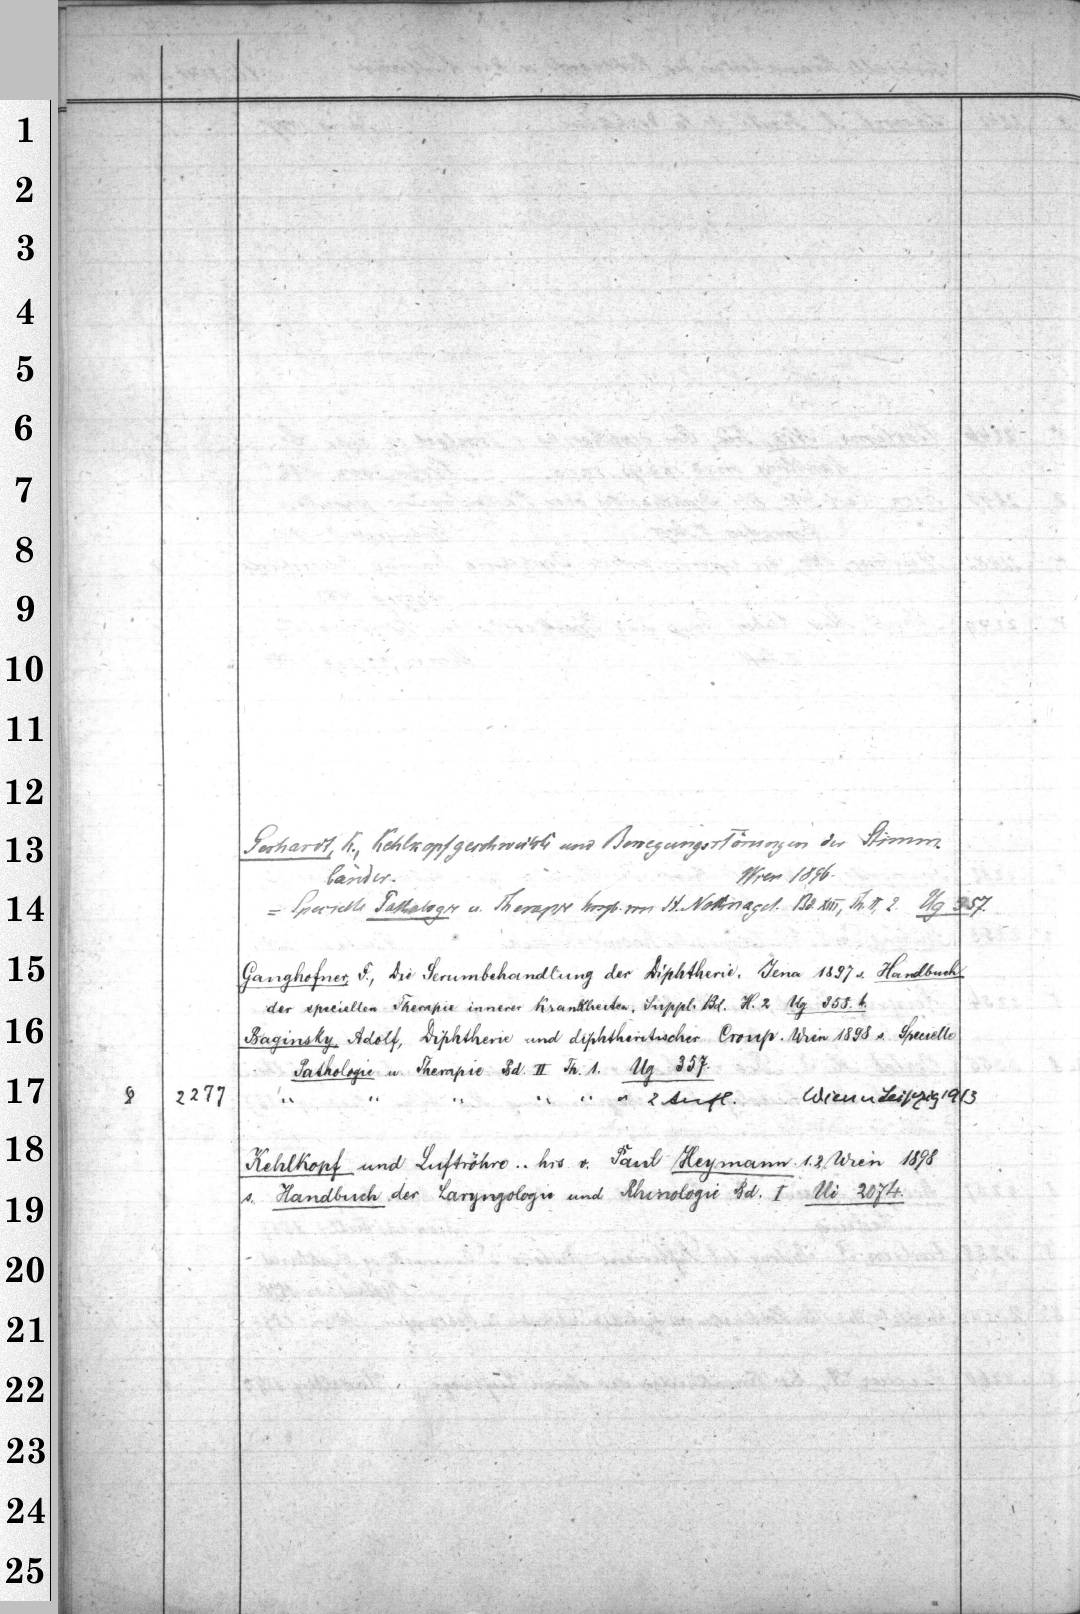 1
2
3
4
5
6
7
8
9
10
11
12
13 Gerhardt, K., Kehlkopfgeschwülste und Bewegungsstörungen der Stimm-
bänder. Wien 1896.
14 = Specielle Pathologie u. Therapie hrsg. von H. Nothnagel. Bd. XIII, Th. II, 2. Ug 357.
15 Ganghofner, F., Die Serumbehandlung der Diphtherie. Jena 1897 s. Handbuch
der speciellen Therapie innerer Krankheiten. Suppl. Bd. H. 2 Ug 358. t.
16 Baginsky, Adolf, Diphtherie und diphtheritischer Croup. Wien 1898 s. Specielle
Pathologie u Therapie Bd. II Th. 1. Ug 357.
17 8 2277 " " " " " " 2 Aufl. Wien u Leipzig 1913
18 Kehlkopf und Luftröhre .. hrs v. Paul Heymann. 1.2 Wien 1898
19 s. Handbuch der Laryngologie und Rhinologie Bd. I Ui 2074.
20
21
22
23
24
25